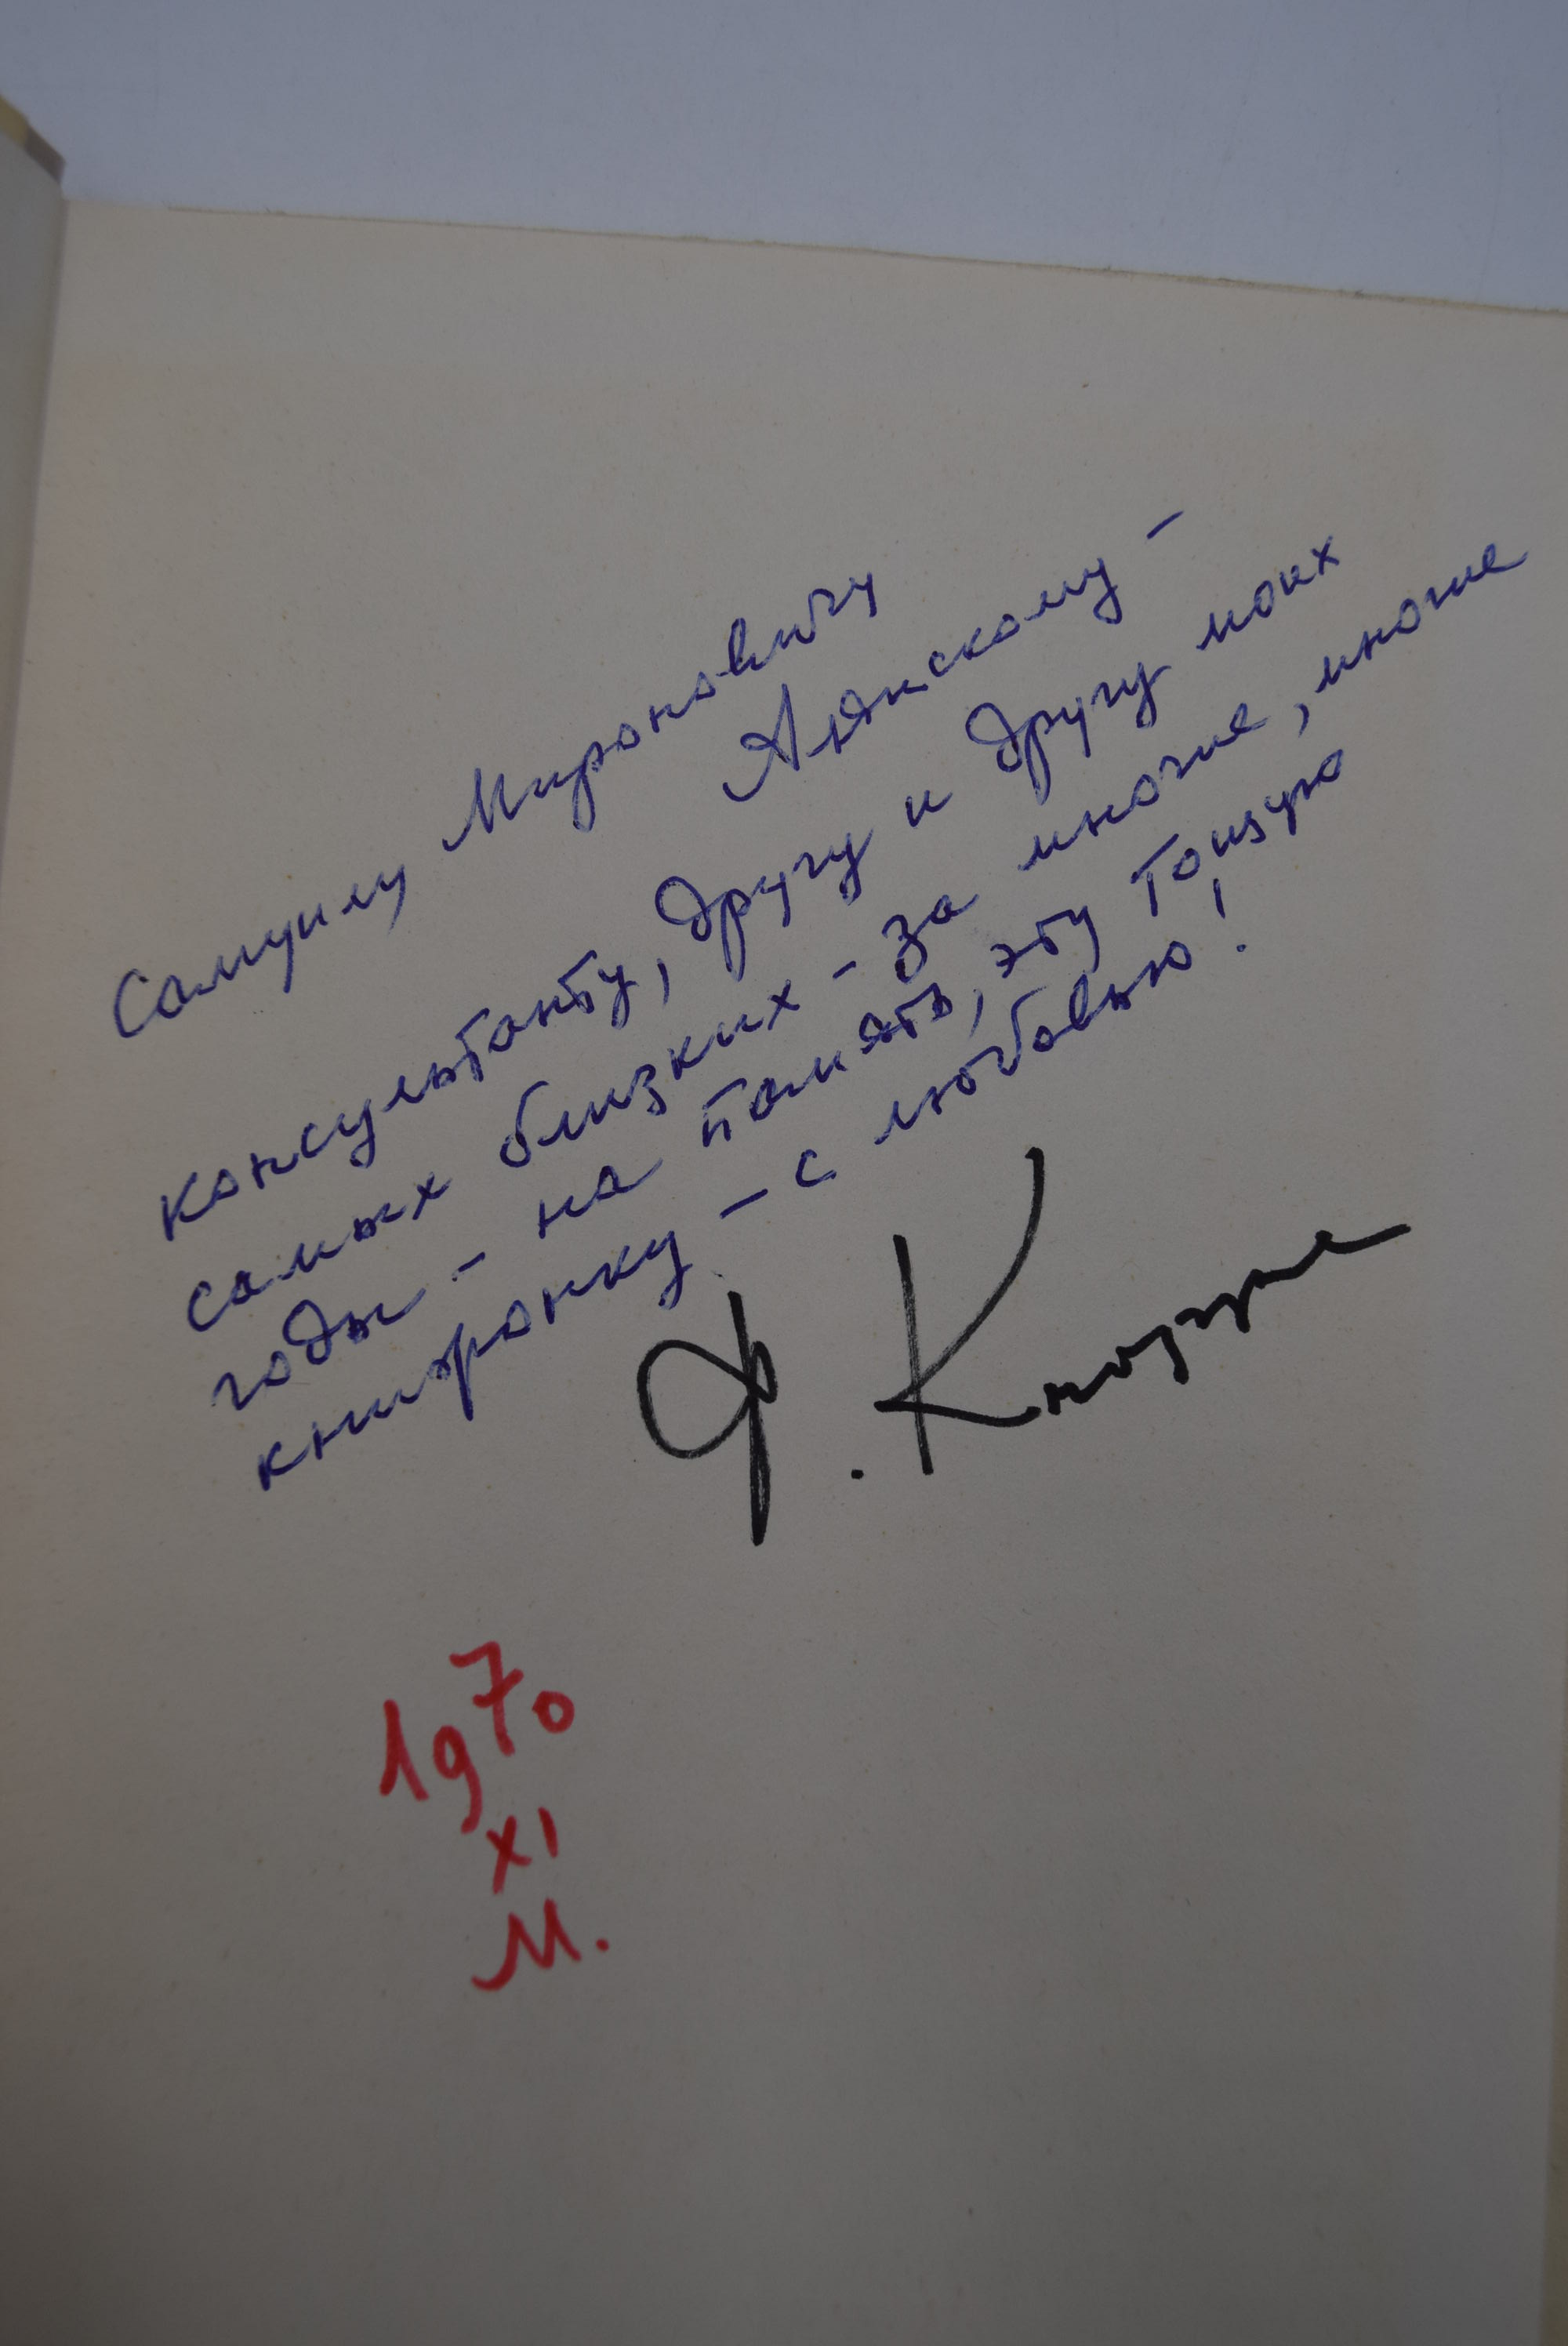 Самуилу Мироновичу
консультанту, другу и другу моих
самых близких – за многие, многие
годы – на память, эту тощую
книжонку – с любовью!
Ф. Кнорре
1970
XI
М.